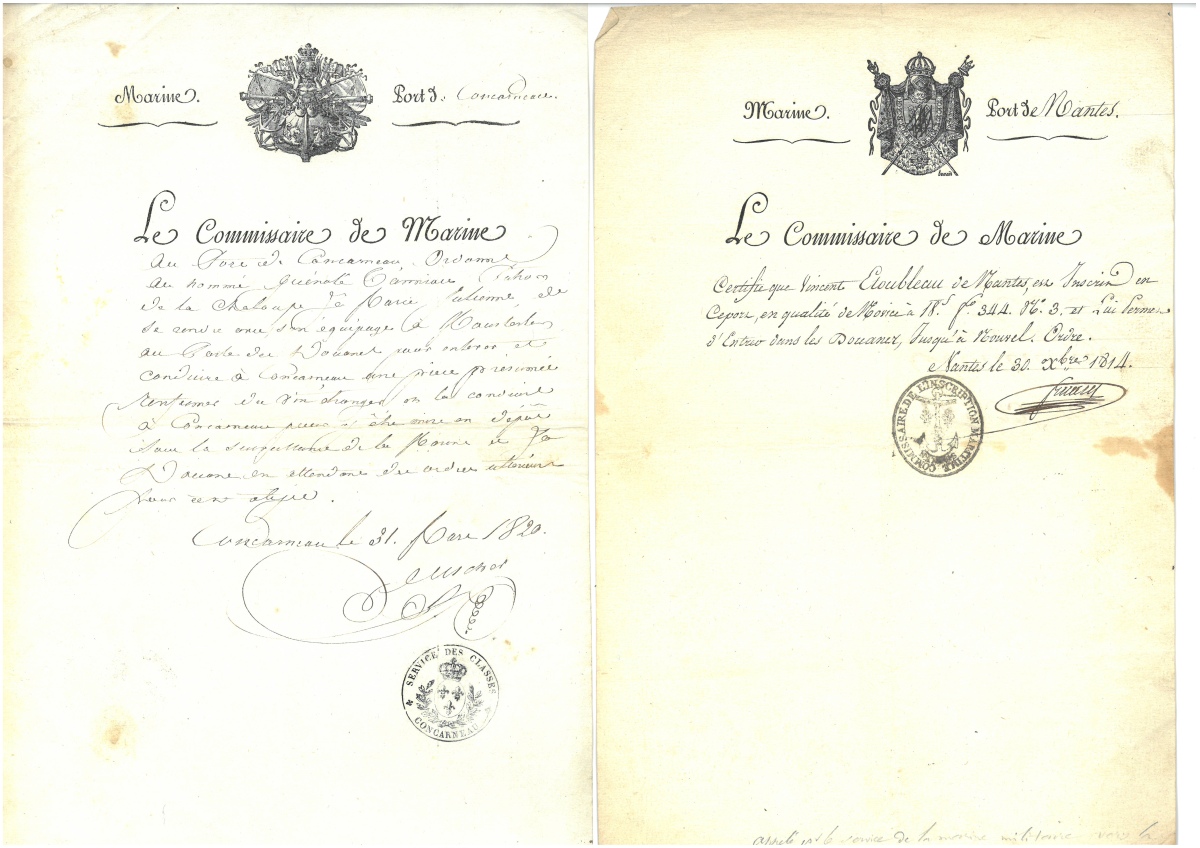 Marine.
Port de Concarneau.
Le Commissaire de Marine
au Port de Concarneau Ordonne
au nommé Guénolé Patron
de la Chaloupe La Marie Julienne, de
se rendre avec son équipage à
au Poste des Douanes pour enlever et
conduire à Concarneau une pièce présumée
renfermer du vin étranger, en la conduire
à Concarneau pour y être mise en dépôt
sous la surveillance de la Marine et la
Douane en attendant des ordres ultérieurs
pour cet objet.
Concarneau le 31. Mars 1820.
SERVICE DES CLASSES
CONCARNEAU
Marine.
Port de Nantes.
Le Commissaire de Marine
Certifie que Vincent Eloubleau de Nantes, est Inscrit en
ce port, en qualité de Novice à 18.s f.o 344. N.o 3. et lui Permet
d'Entrer dans les Douanes, Jusqu'à Nouvel Ordre.
Nantes le 30. Xbre 1814.
COMMISSAIRE DE L'INSCRIPTION MARITIME
appelé au service de la marine militaire vers la